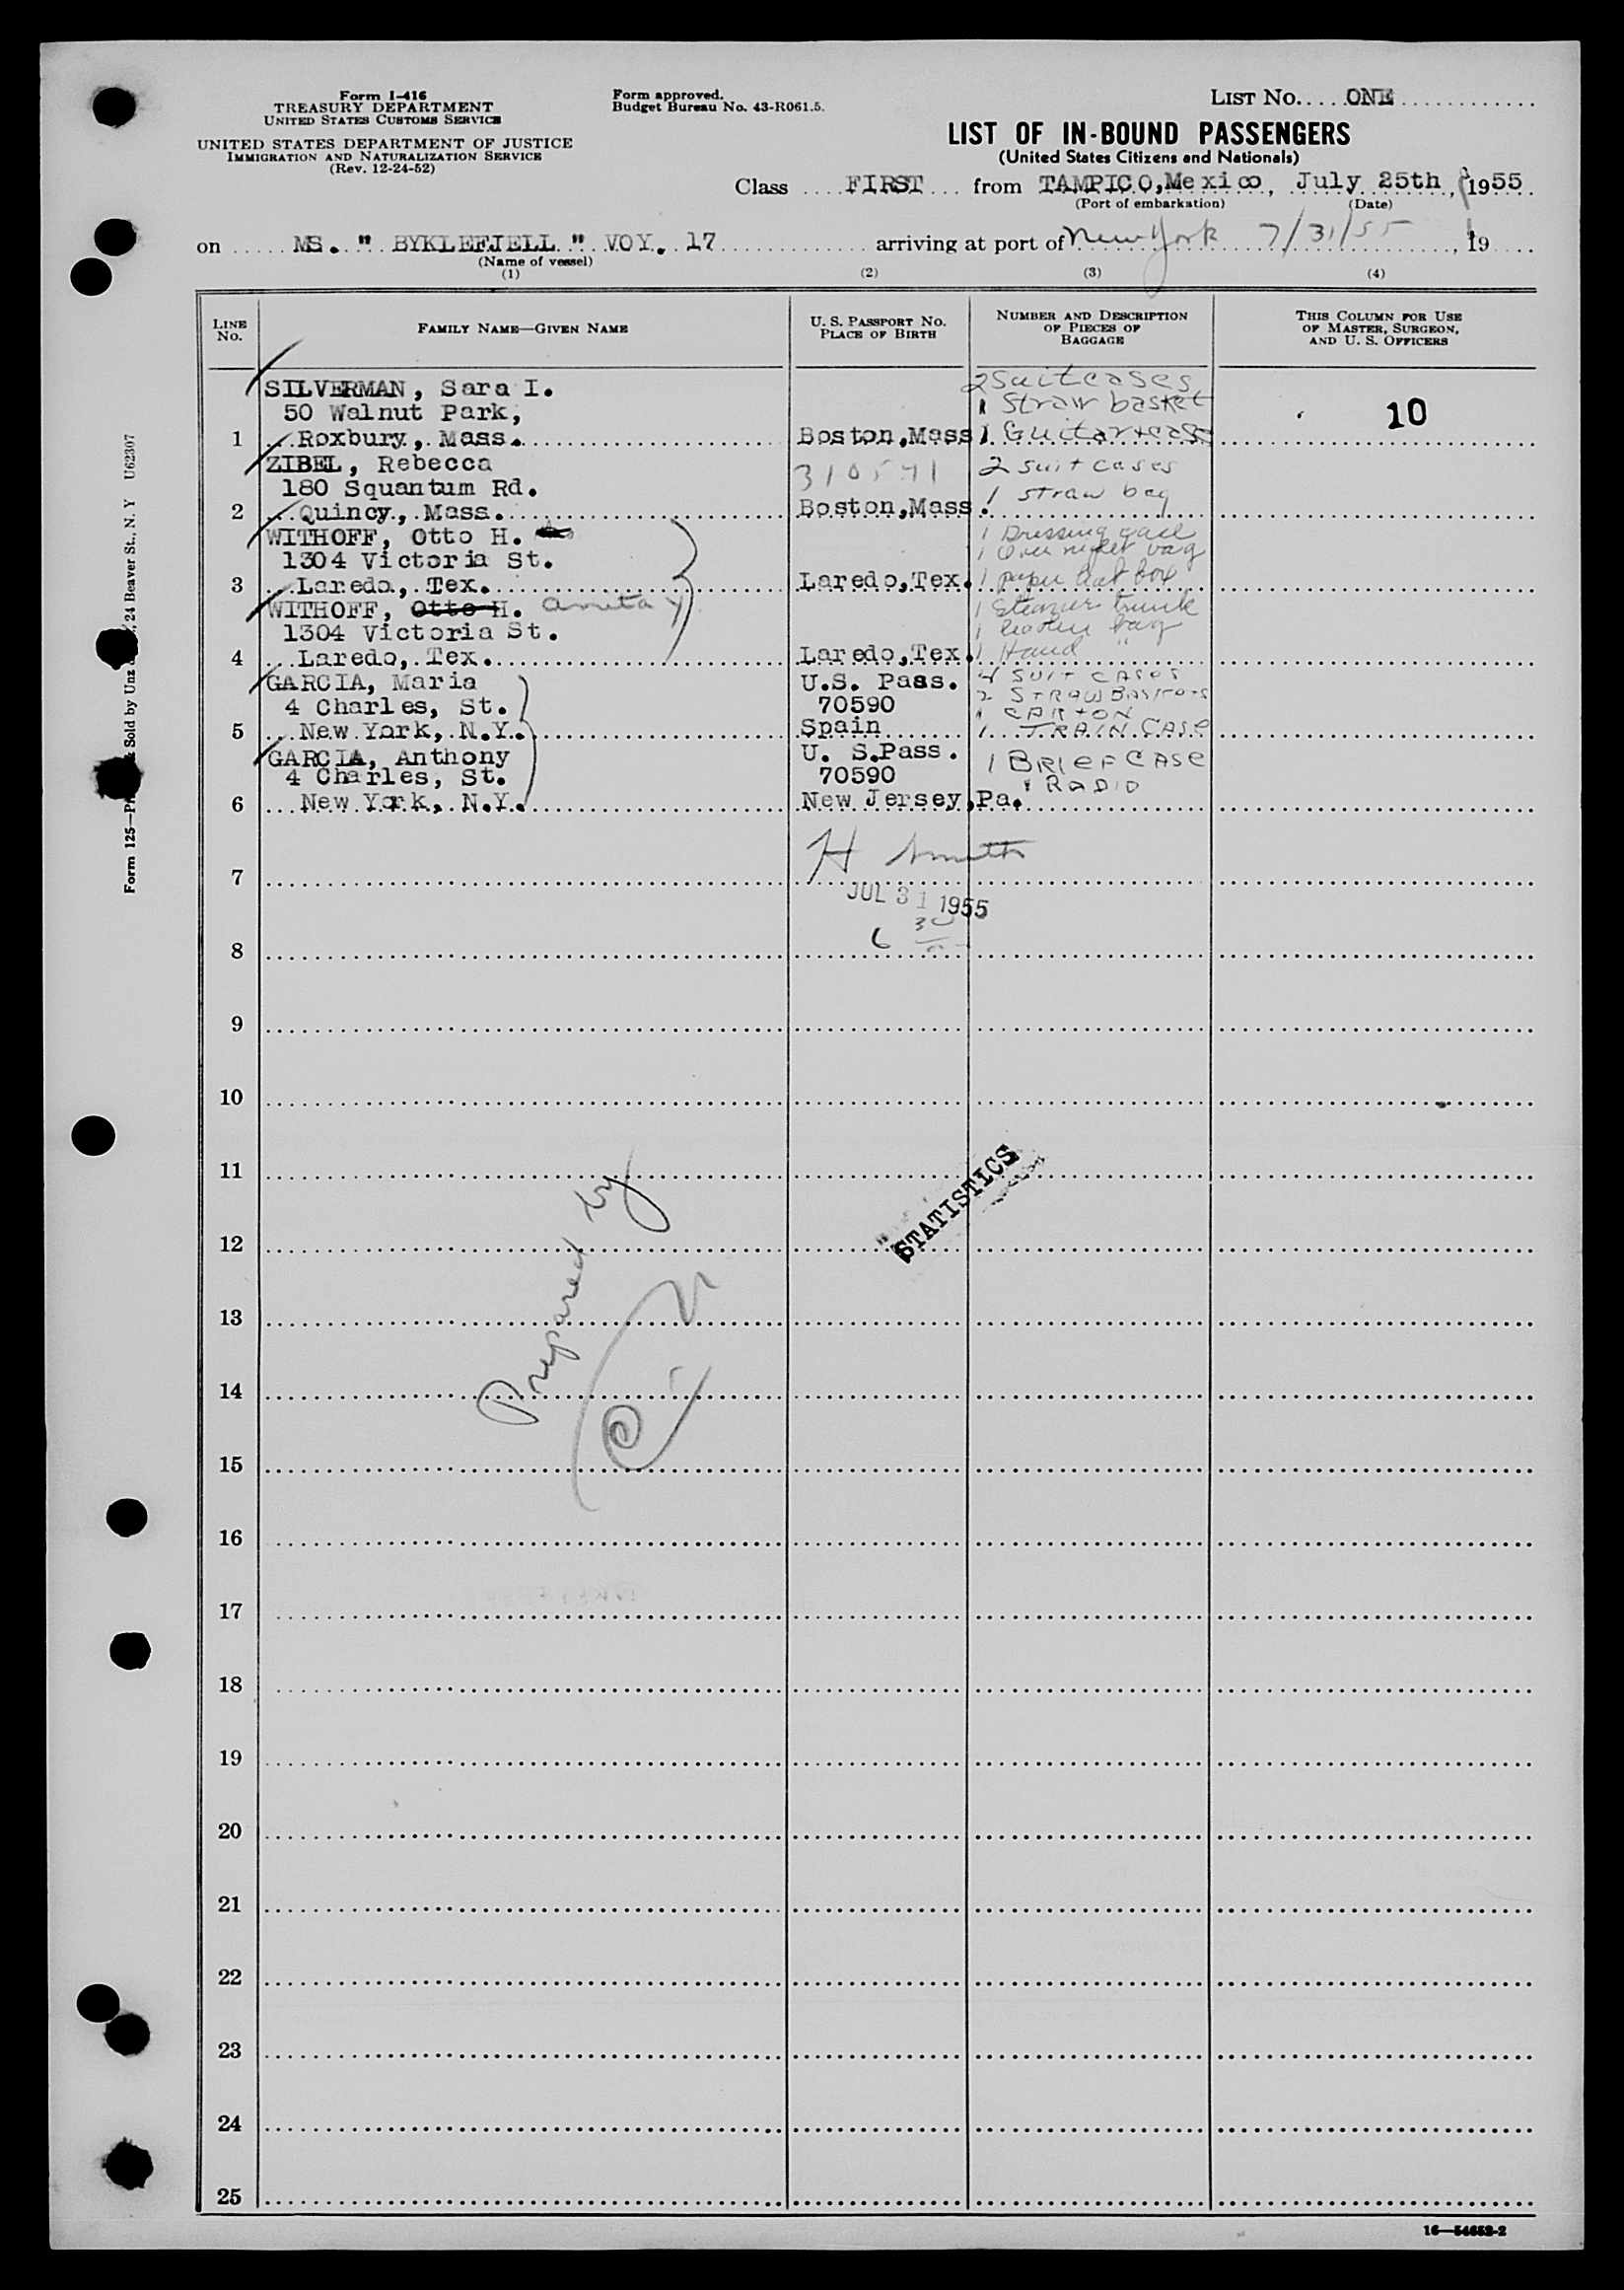 Form I-416
TREASURY DEPARTMENT
UNITED STATES CUSTOMS SERVICE
UNITED STATES DEPARTMENT OF JUSTICE
IMMIGRATION AND NATURALIZATION SERVICE
(Rev. 12-24-52)
Form approved.
Budget Bureau No. 43-R061.5.
LIST No. ONE
LIST OF IN-BOUND PASSENGERS
(United States Citizens and Nationals)
Class FIRST from TAMPICO, Mexico, July 25th, 1955
(Port of embarkation) (Date)
on MS. " BYKLEFJELL " VOY. 17 arriving at port of New York 7/31/55, 19
(Name of vessel)
(1) (2) (3) (4)
LINE No.
FAMILY NAME—GIVEN NAME
U. S. PASSPORT NO.
PLACE OF BIRTH
NUMBER AND DESCRIPTION
OF PIECES OF
BAGGAGE
THIS COLUMN FOR USE
OF MASTER, SURGEON,
AND U. S. OFFICERS
SILVERMAN, Sara I. 2 Suitcases
50 Walnut Park, 1 Straw basket 10
1 Roxbury, Mass. Boston,Mass 1 Guitar + case
ZIBEL, Rebecca 310541 2 suitcases
180 Squantum Rd. 1 straw bag
2 Quincy, Mass. Boston,Mass.
WITHOFF, Otto H. 1 Dressing case
1304 Victoria St. 1 Over night bag
3 Laredo, Tex. Laredo,Tex. 1 paper hat box
WITHOFF, Otto H. Anita Y. 1 Steamer trunk
1304 Victoria St. 1 bag
4 Laredo, Tex. Laredo,Tex. 1 Hand "
GARCIA, Maria U.S. Pass. 4 SUIT CASES
4 Charles, St. 70590 2 STRAW BASKETS
1 CARTON
5 New York, N.Y. Spain 1 TRAIN CASE
GARCIA, Anthony U. S.Pass. 1 BRIEF CASE
4 Charles, St. 70590 1 RADIO
6 New York, N.Y. New Jersey,Pa.
H Smith
7
JUL 31 1955
6 30
8
9
10
11
STATISTICS
12
Prepared by
13
14
15
16
17
18
19
20
21
22
23
24
25
16—54652-2
Form 125— Sold by Unz 24 Beaver St., N. Y U62307